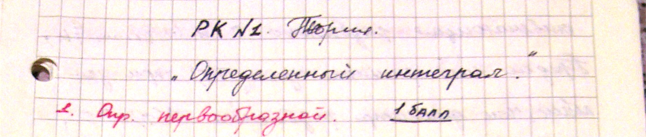 РК №1. Теория.
„Определенный интеграл."
1. Опр. первообразной. 1 балл